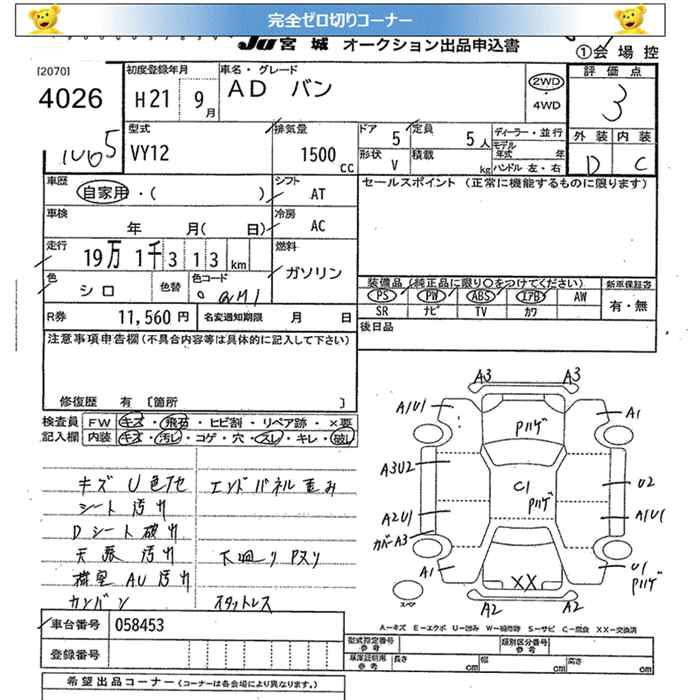 完全ゼロ切りコーナー
JU 宮城 オークション出品申込書
①会場控
[2070]
4026
初度登録年月
H21 9月
車名・グレード
AD バン
2WD
・
4WD
評価点
3
外装 内装
D C
型式
VY12
排気量
1500 CC
ドア 5
定員 5人
形状 V
積載 kg
ディーラー・並行
モデル年式 年
ハンドル 左・右
車歴
自家用・( )
シフト
AT
セールスポイント (正常に機能するものに限ります)
車検
年 月( 日)
冷房
AC
走行
19万 1千 3 1 3 km
燃料
ガソリン
色
シロ
色替
色コード
装備品 (純正品に限り○をつけてください)
新車保証書
PS PW ABS エアB AW
有・無
SR ナビ TV カワ
R券 11,560 円
名変通知期限 月 日
後日品
注意事項申告欄 (不具合内容等は具体的に記入して下さい)
修復歴 有 〔箇所 〕
検査員記入欄
FW キズ・飛石・ヒビ割・リペア跡・×要
内装 キズ・汚レ・コゲ・穴・スレ・キレ・破レ
キズ U 色アセ エンドパネル歪み
シート 汚れ
Dシート 破れ
天張 汚れ 下廻り Pヌリ
荷室 AU 汚れ
カンバン スタットレス
A3 A3
A1U1 Pハゲ A1
A3U2 C1 U2
Pハゲ
A2U1 A1U1
カバーA3
A1 XX U1 Pハゲ
スペア A2 A2
A—キズ E—エクボ U—凹み W—補修跡 S—サビ C—腐食 XX—交換済
車台番号 058453
登録番号
型式指定番号 参考
類別区分番号 参考
車庫証明用 参考 長さ cm 幅 cm 高さ cm
希望出品コーナー (コーナーは各会場により異なります。)